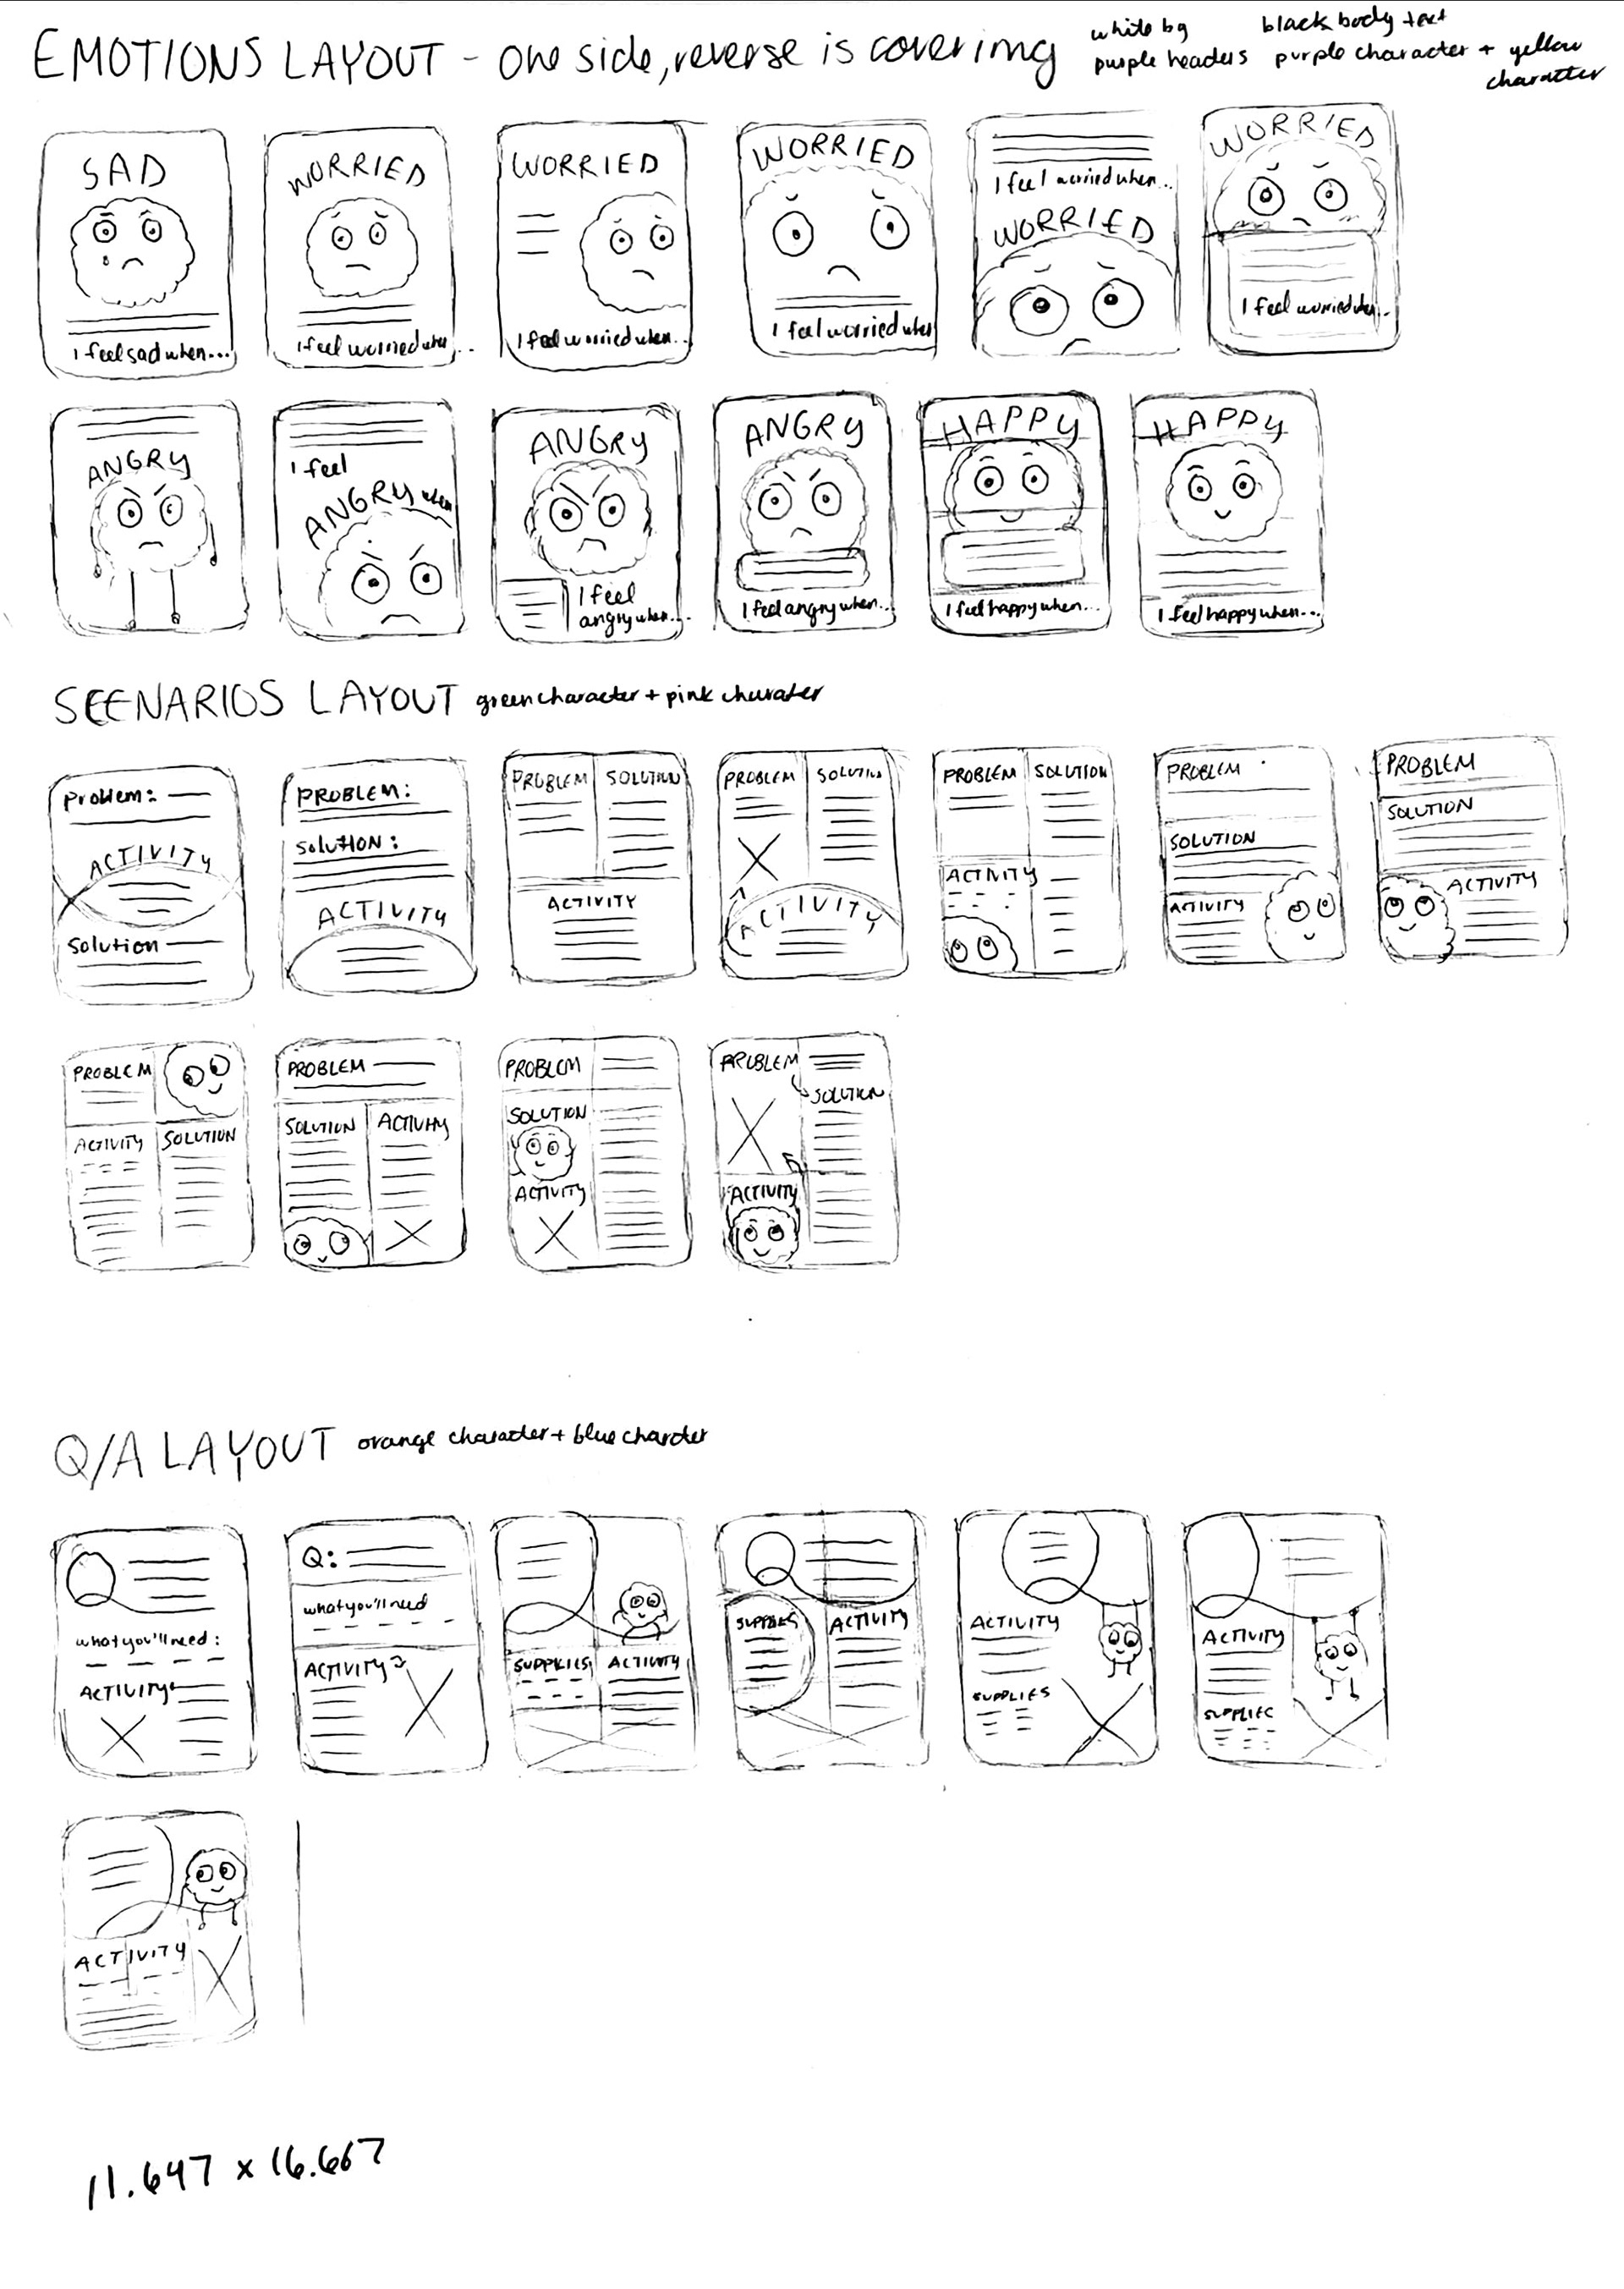 EMOTIONS LAYOUT - one side, reverse is cover img
white bg
purple headers
black body text
purple character + yellow
character
SAD
I feel sad when...
WORRIED
I feel worried when...
WORRIED
I feel worried when...
WORRIED
I feel worried when
I feel worried when...
WORRIED
WORRIED
I feel worried when...
ANGRY
I feel
ANGRY when
ANGRY
I feel
angry when...
ANGRY
I feel angry when...
HAPPY
I feel happy when...
HAPPY
I feel happy when...
SCENARIOS LAYOUT green character + pink charater
Problem:
ACTIVITY
Solution
PROBLEM:
Solution:
ACTIVITY
PROBLEM SOLUTION
ACTIVITY
PROBLEM SOLUTION
ACTIVITY
PROBLEM SOLUTION
ACTIVITY
PROBLEM
SOLUTION
ACTIVITY
PROBLEM
SOLUTION
ACTIVITY
PROBLEM
ACTIVITY SOLUTION
PROBLEM
SOLUTION ACTIVITY
PROBLEM
SOLUTION
ACTIVITY
PROBLEM
SOLUTION
ACTIVITY
Q/A LAYOUT orange character + blue charcter
Q
what you'll need:
ACTIVITY
Q:
what you'll need
ACTIVITY
SUPPLIES ACTIVITY
Q
SUPPLIES ACTIVITY
Q
ACTIVITY
SUPPLIES
Q
ACTIVITY
SUPPLIES
ACTIVITY
11.647 x 16.667